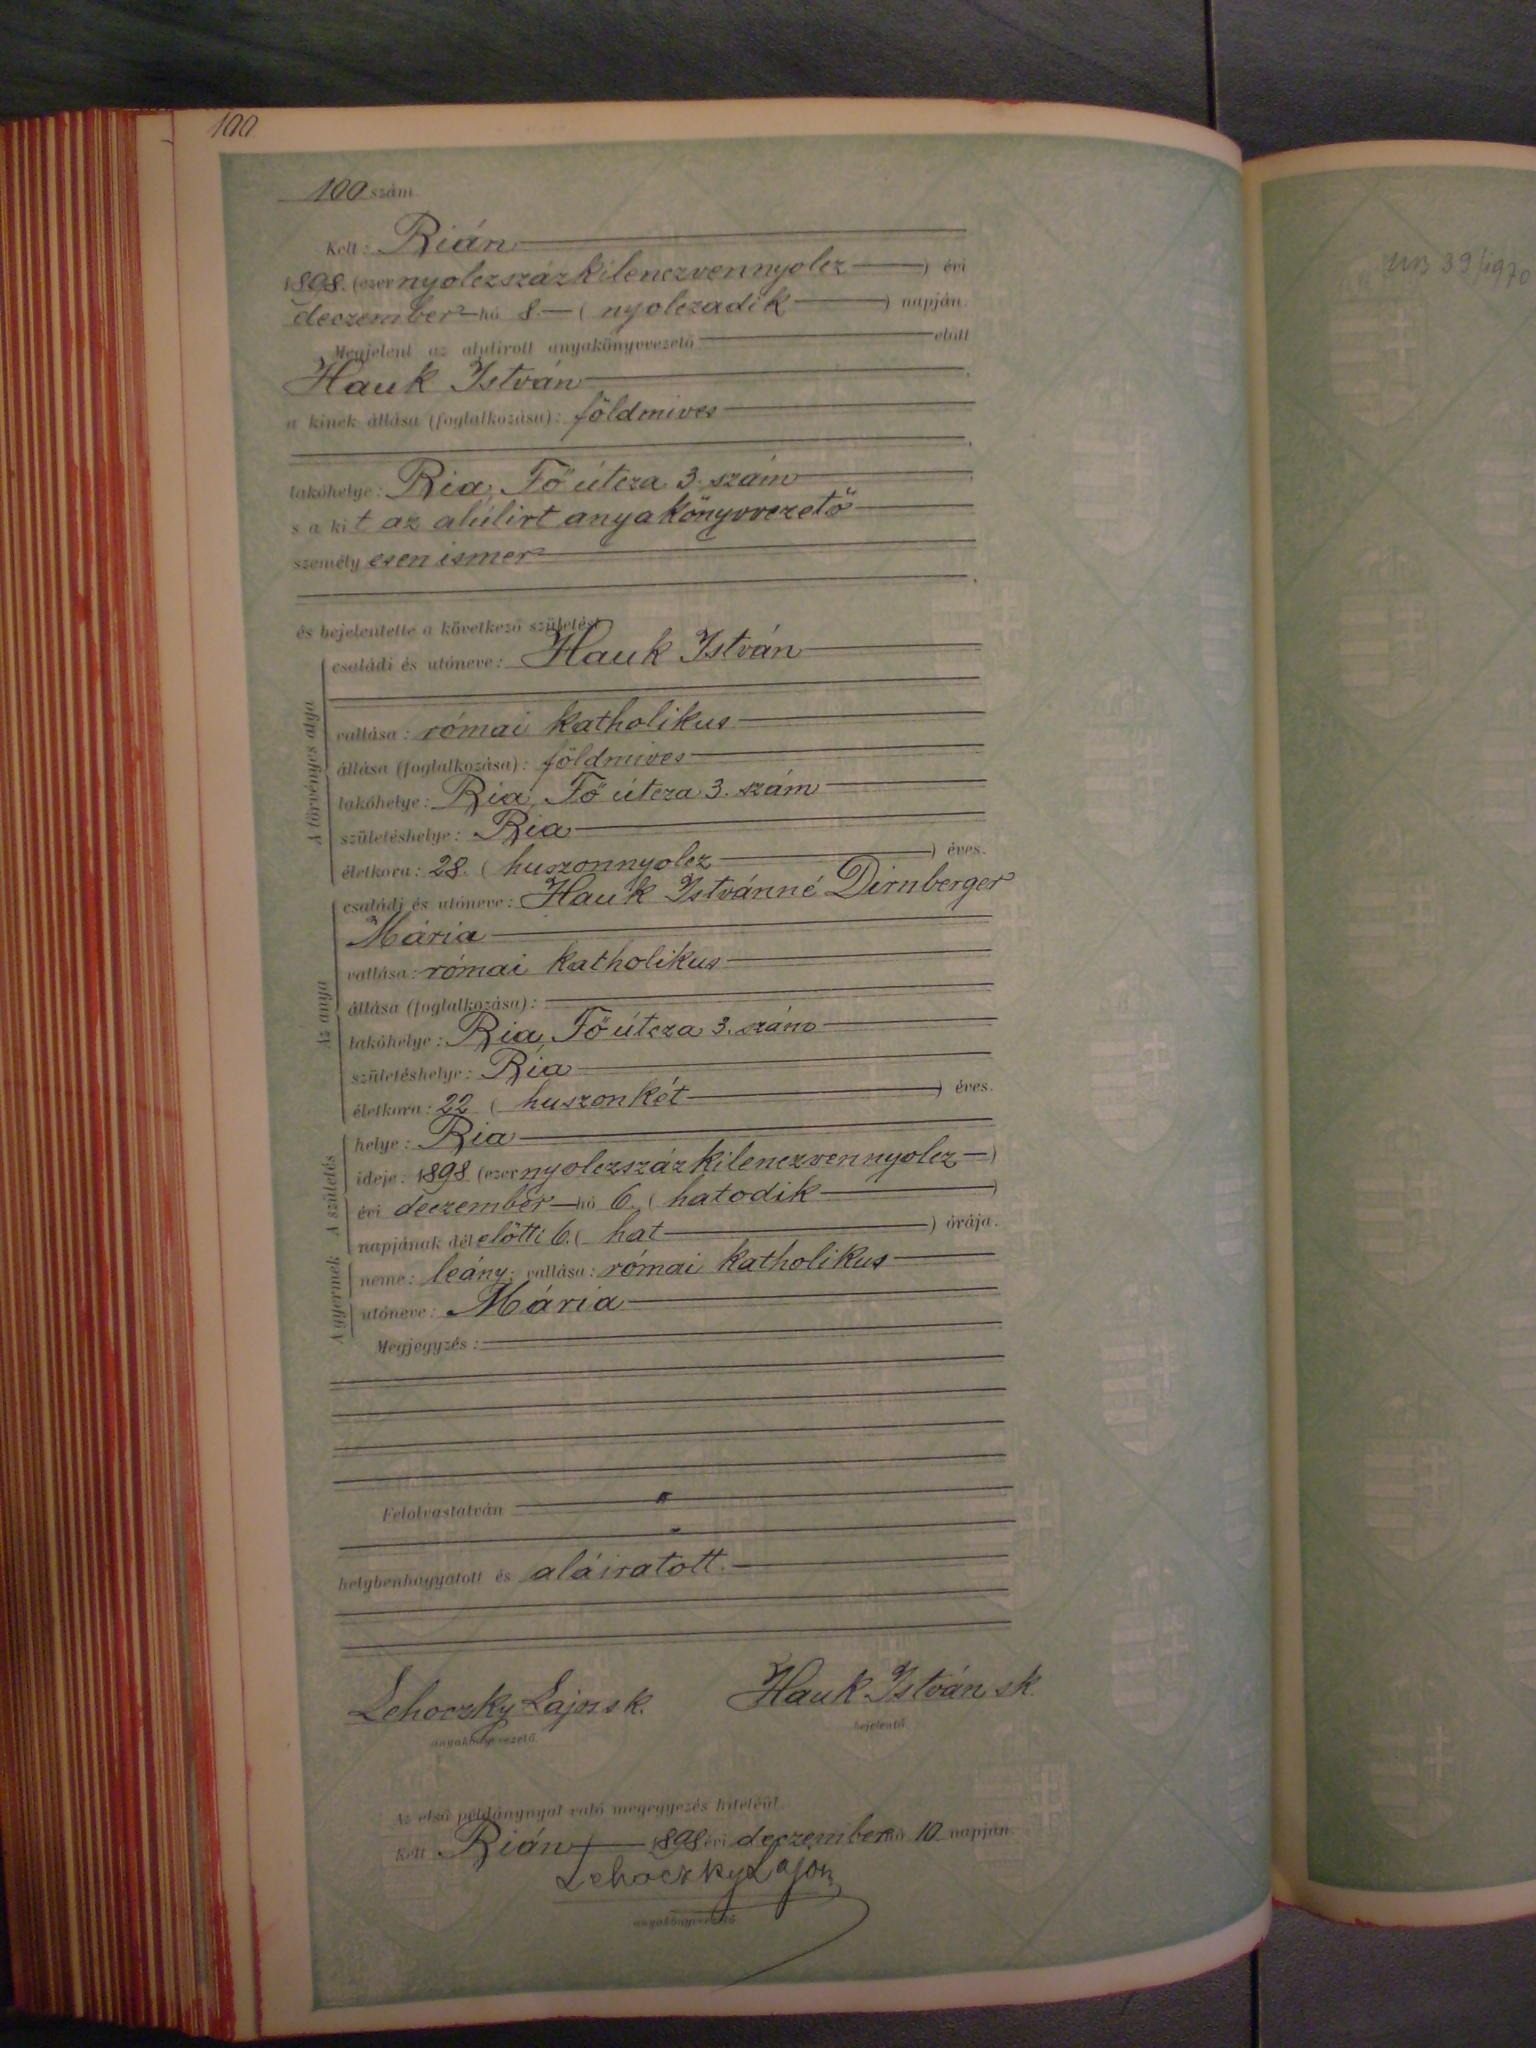 100
100 szám.
Kelt: Rián
1898. (ezer nyolczszázkilenczvennyolcz) évi
deczember hó 8. (nyolczadik) napján.
Megjelent az alulirott anyakönyvvezető előtt
Hauk István
a kinek állása (foglalkozása): földmives
lakóhelye: Ria, Fő útcza 3. szám
s a kit az alúlirt anyakönyvvezető
személyesen ismer
és bejelentette a következő születést
A törvényes atya
családi és utóneve: Hauk István
vallása: római katholikus
állása (foglalkozása): földmives
lakóhelye: Ria, Fő útcza 3. szám
születéshelye: Ria
életkora: 28. (huszonnyolcz) éves.
Az anya
családi és utóneve: Hauk Istvánné Dirnberger
Mária
vallása: római katholikus
állása (foglalkozása):
lakóhelye: Ria, Fő útcza 3. szám
születéshelye: Ria
életkora: 22 (huszonkét) éves.
A születés
helye: Ria
ideje: 1898 (ezer nyolczszázkilenczvennyolcz)
évi deczember hó 6. (hatodik)
napjának délelőtti 6. (hat) órája.
A gyermek
neme: leány; vallása: római katholikus
utóneve: Mária
Megjegyzés:
Felolvastatván
helybenhagyatott és aláiratott.
Lehoczky Lajos sk. Hauk István sk.
anyakönyvvezető. bejelentő.
Az első példánynyal való megegyezés hiteléül.
Kelt Rián 1898 évi deczember hó 10 napján
Lehoczky Lajos
anyakönyvvezető
39/1970